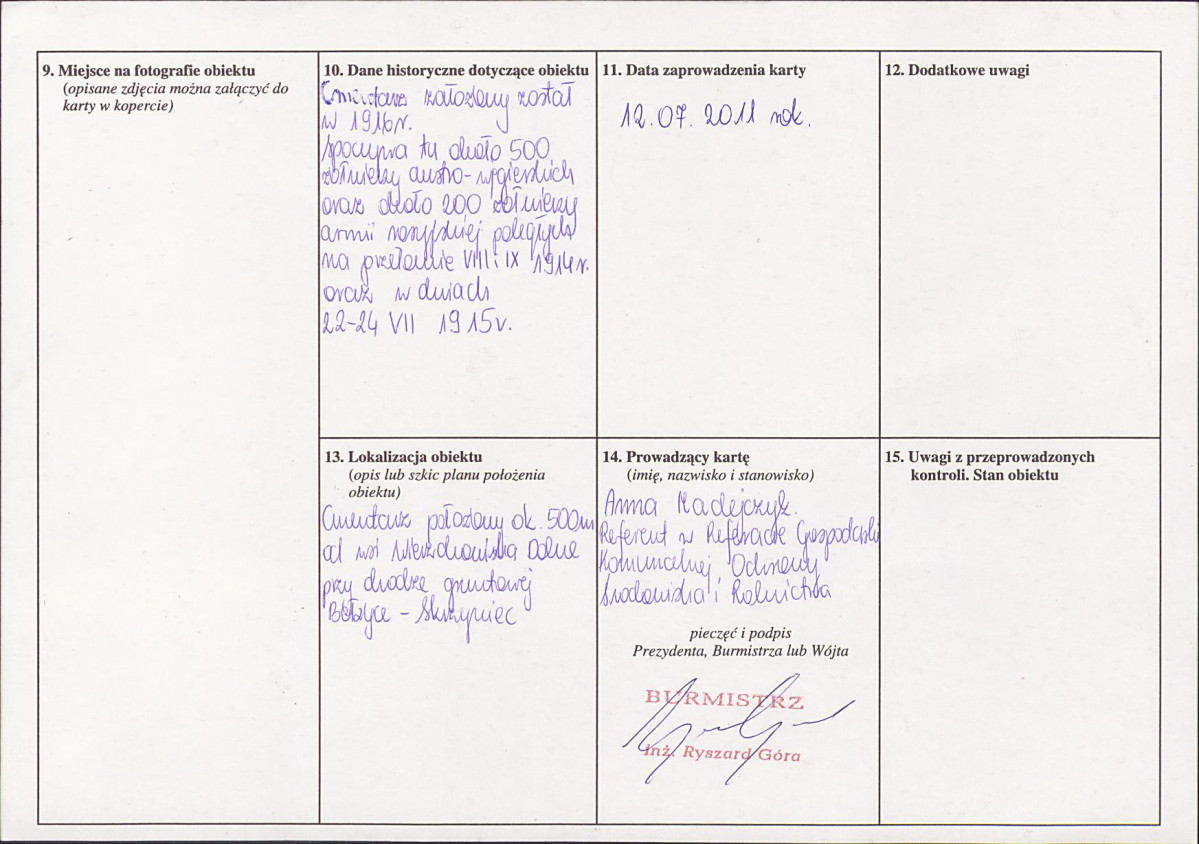 9. Miejsce na fotografie obiektu
(opisane zdjęcia można załączyć do
karty w kopercie)
10. Dane historyczne dotyczące obiektu
Cmentarz założony został
w 1916r.
spoczywa tu około 500
żołnierzy austro-węgierskich
oraz około 200 żołnierzy
armii rosyjskiej poległych
na przełomie VIII i IX 1914r.
oraz w dniach
22-24 VII 1915r.
11. Data zaprowadzenia karty
12.07.2011 rok.
12. Dodatkowe uwagi
13. Lokalizacja obiektu
(opis lub szkic planu położenia
obiektu)
Cmentarz położony ok. 500m
od wsi Wierzchowiska Dolne
przy drodze gruntowej
Bełżyce - Skrzyniec
14. Prowadzący kartę
(imię, nazwisko i stanowisko)
Anna Madejczyk.
Referent w Referacie Gospodarki
Komunalnej Ochrony
Środowiska i Rolnictwa
pieczęć i podpis
Prezydenta, Burmistrza lub Wójta
BURMISTRZ
inż. Ryszard Góra
15. Uwagi z przeprowadzonych
kontroli. Stan obiektu